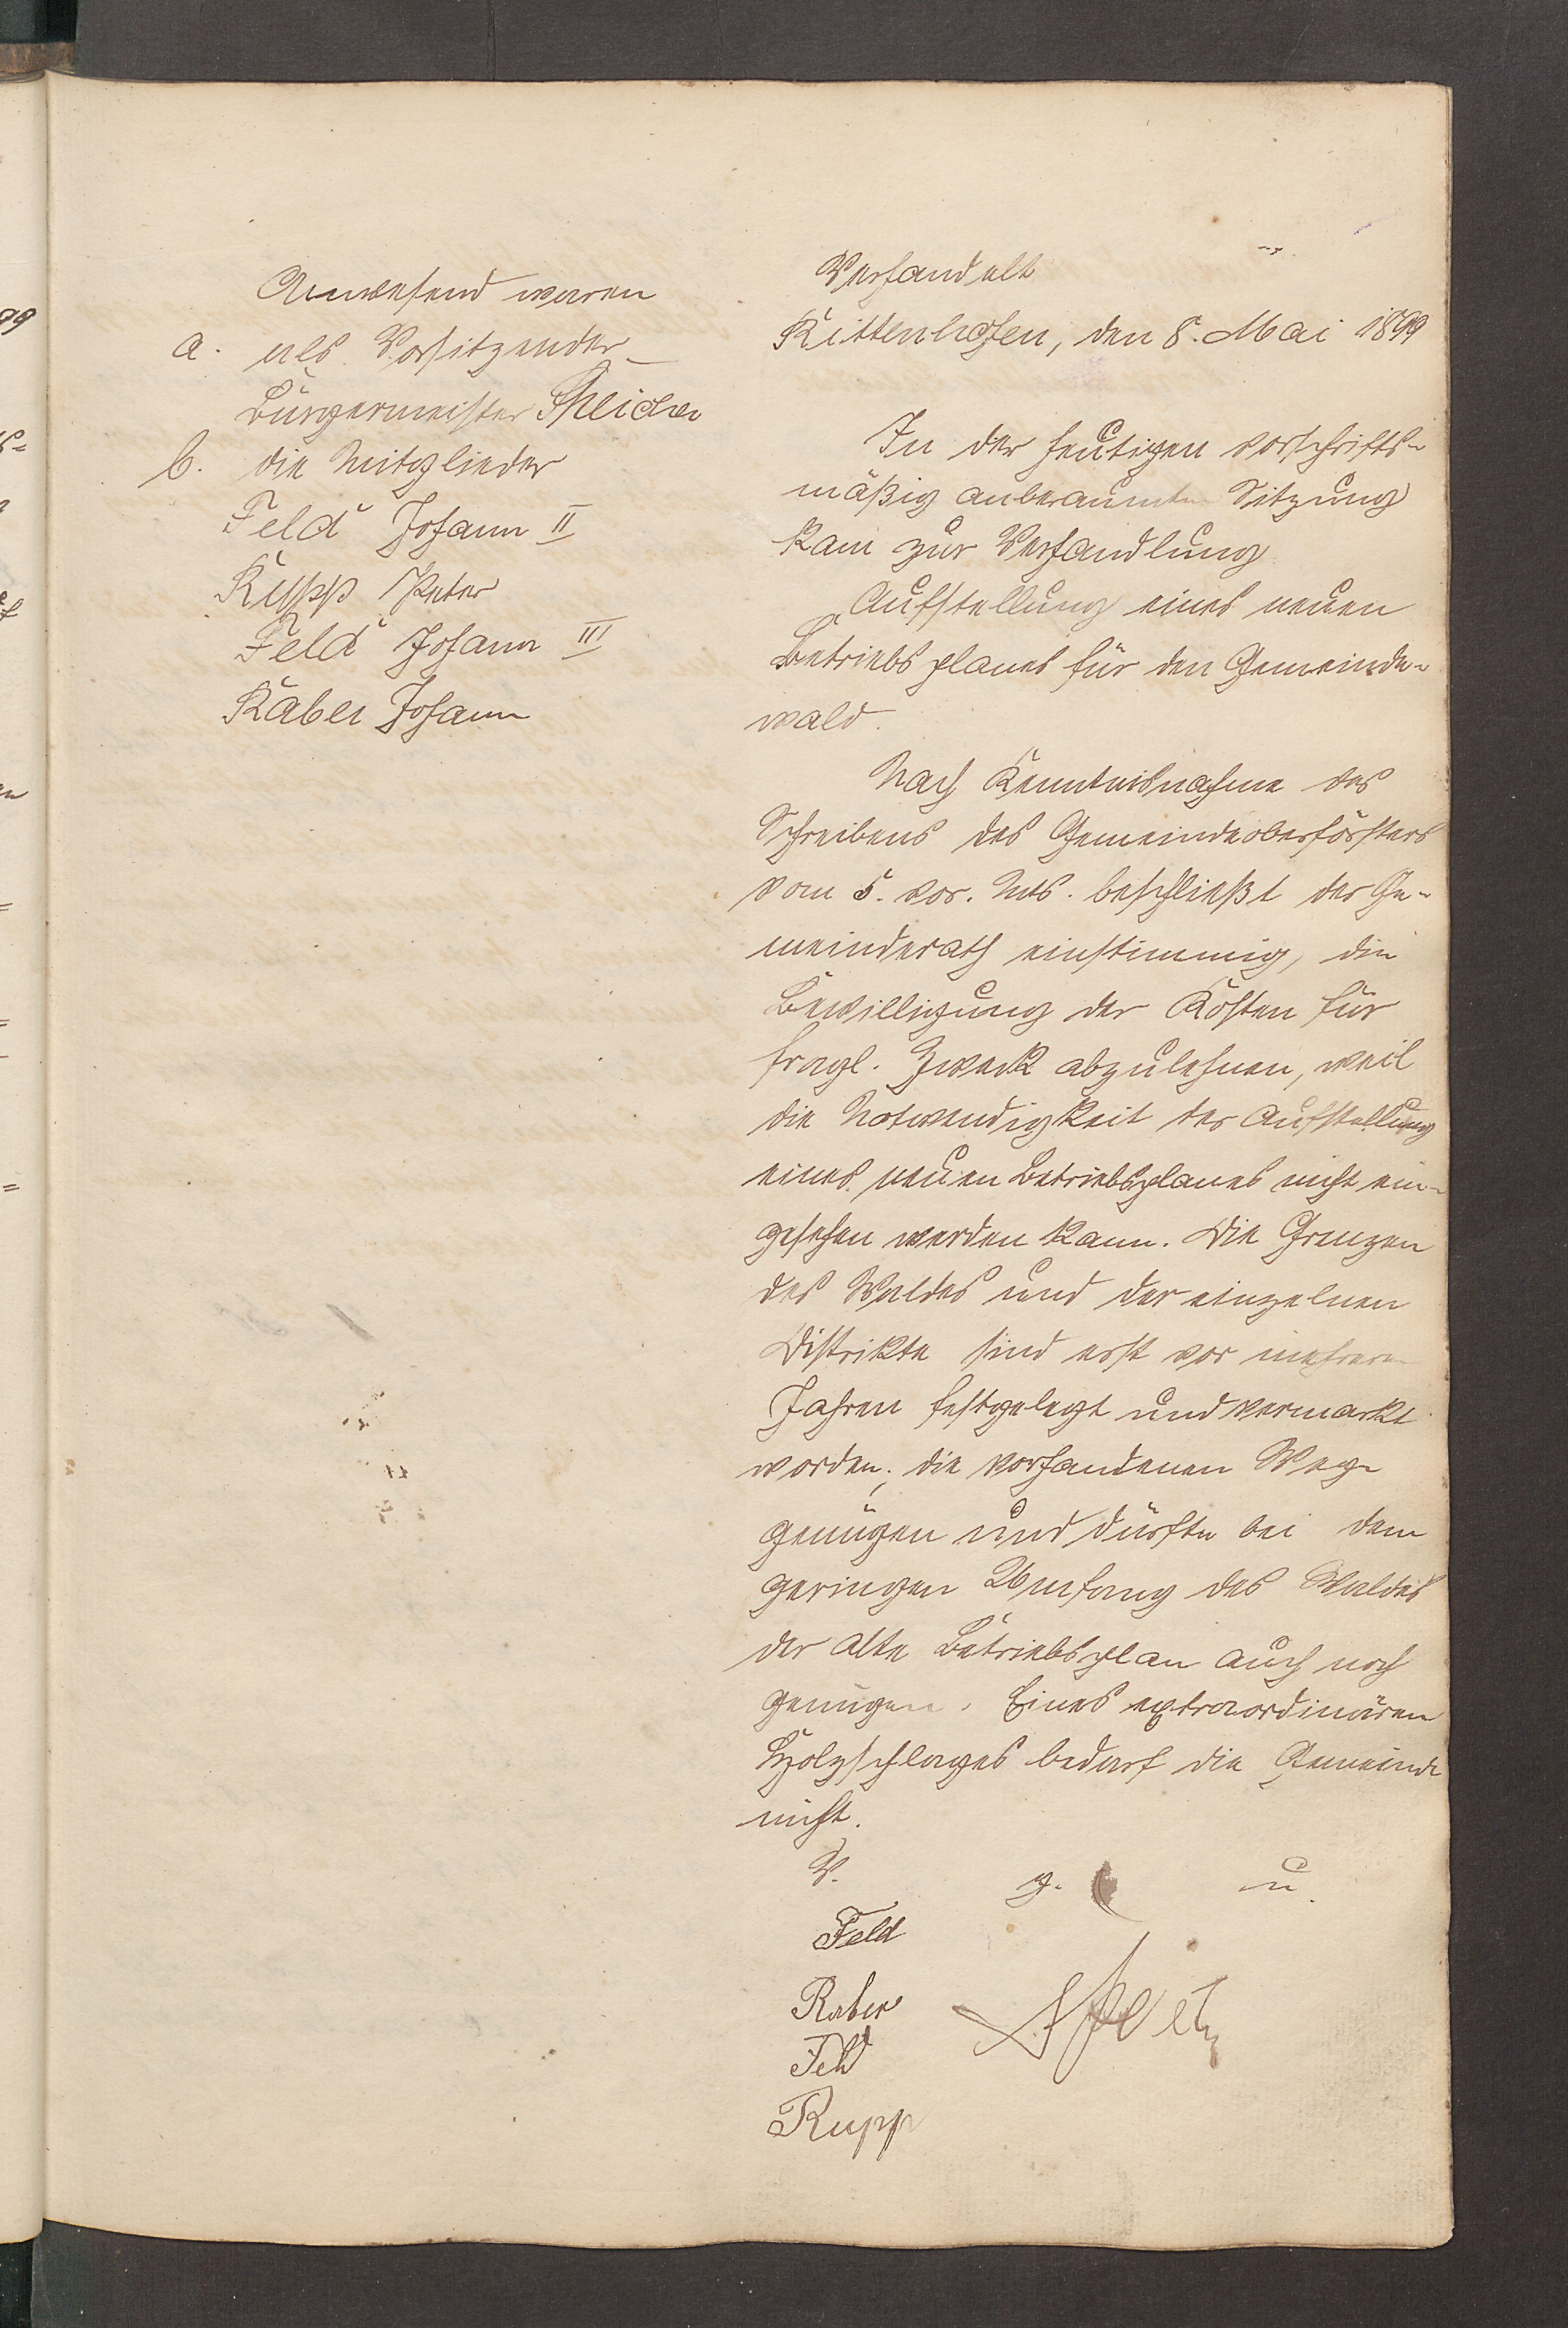 Anwesend waren
a. als Vorsitzender
Bürgermeister Speicher
b. die Mitglieder
Feld Johann II
Rupp Peter
Feld Johann III
Raber Johann
Verhandelt
Rittenhofen, den 8. Mai 1899
In der heutigen vorschrifts-
mäßig anberaumten Sitzung
kam zur Verhandlung
Aufstellung eines neuen
Betriebsplanes für den Gemeinde-
wald.
Nach Kenntnisnahme des
Schreibens des Gemeindeoberförsters
vom 5. vor. Mts. beschließt der Ge-
meinderath einstimmig, die
Bewilligung der Kosten für
fragl. Zweck abzulehnen, weil
die Notwendigkeit der Aufstellung
eines neuen Betriebsplanes nicht ein-
gesehen werden kann. Die Grenzen
des Waldes und der einzelnen
Distrikte sind erst vor mehreren
Jahren festgelegt und vermarkt
worden; die vorhandenen Wege
genügen und dürfte bei dem
geringen Umfang des Waldes
der alte Betriebsplan auch noch
genügen. Eines extraordinären
Holzschlages bedarf die Gemeinde
nicht.
V. g. u.
Feld
Raber
Feld
Rupp